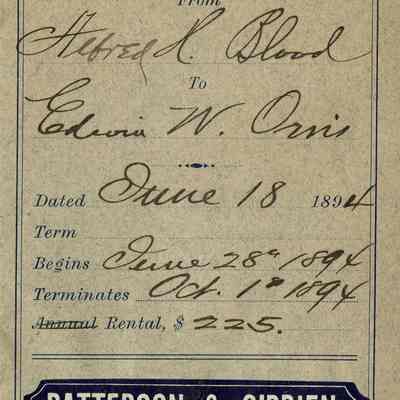 From
Alfred H. Blood
To
Edwin W. Orvis
Dated June 18 1894
Term
Begins June 28th 1894
Terminates Oct. 1st 1894
Annual Rental, $ 225.
PATTERSON & O'BRIEN